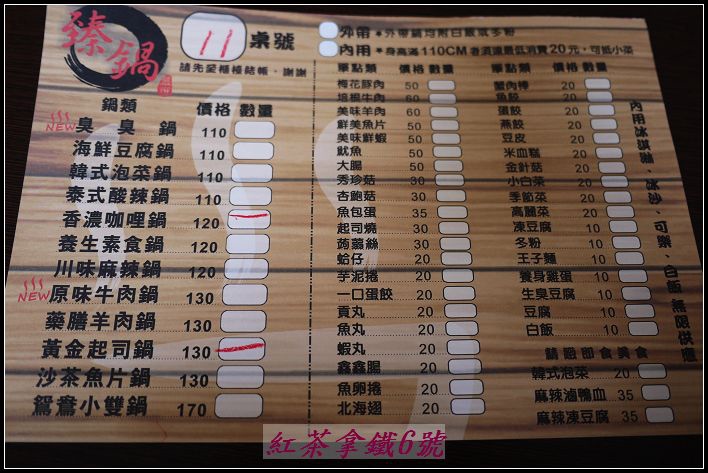 臻鍋
11 桌號
請先至櫃檯結帳，謝謝
外帶 *外帶鍋均附白飯或冬粉
內用 *身高滿110CM者須達最低消費20元，可抵小菜
鍋類 價格 數量
NEW 臭臭鍋 110
海鮮豆腐鍋 110
韓式泡菜鍋 110
泰式酸辣鍋 110
香濃咖哩鍋 120
養生素食鍋 120
川味麻辣鍋 120
NEW 原味牛肉鍋 130
藥膳羊肉鍋 130
黃金起司鍋 130
沙茶魚片鍋 130
鴛鴦小雙鍋 170
單點類 價格 數量
梅花豚肉 50
培根牛肉 60
美味羊肉 60
鮮美魚片 50
美味鮮蝦 50
魷魚 50
大腸 50
秀珍菇 30
杏鮑菇 30
魚包蛋 35
起司燒 30
蒟蒻絲 30
蛤仔 20
芋泥捲 20
一口蛋餃 20
貢丸 20
魚丸 20
蝦丸 20
鑫鑫腸 20
魚卵捲 20
北海翅 20
單點類 價格 數量
蟹肉棒 20
魚餃 20
蛋餃 20
燕餃 20
豆皮 20
米血糕 20
金針菇 20
小白菜 20
季節菜 20
高麗菜 20
凍豆腐 10
冬粉 10
王子麵 10
養身雞蛋 10
生臭豆腐 10
豆腐 10
白飯 10
精緻即食美食
韓式泡菜 20
麻辣滷鴨血 35
麻辣凍豆腐 35
內用冰淇淋、冰沙、可樂、白飯 無限供應
紅茶拿鐵6號